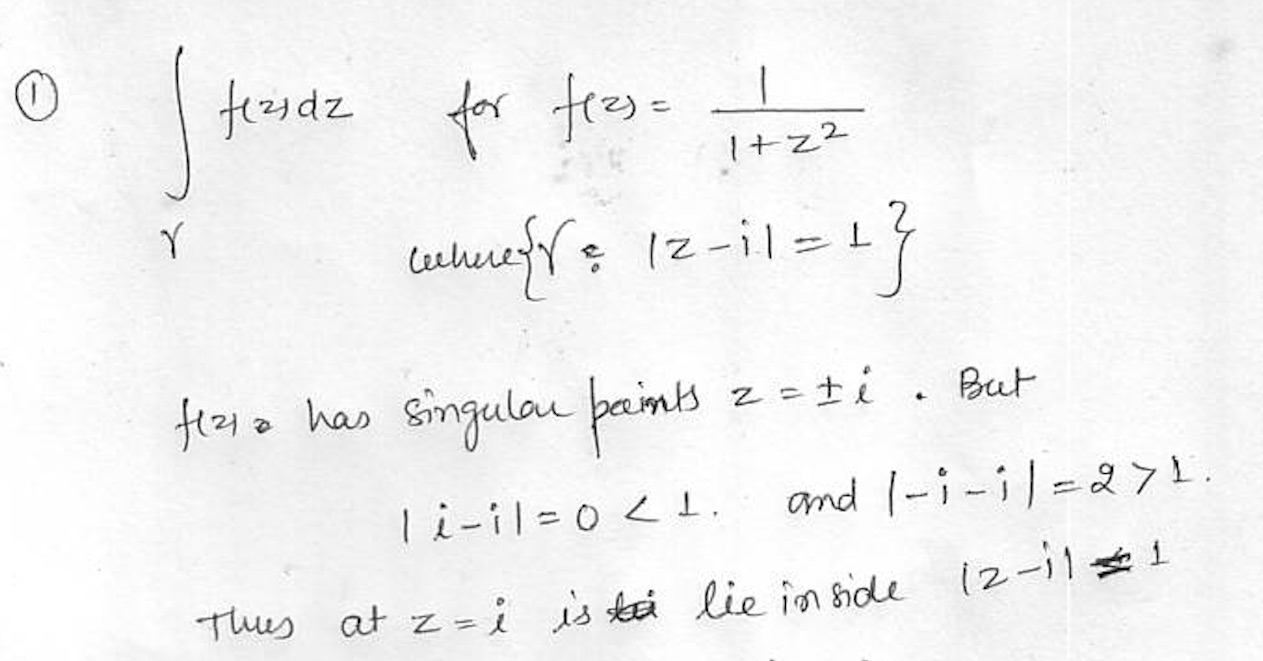 ① ∫_γ f(z)dz for f(z) = 1/(1+z²)
where {γ : |z-i| = 1}
f(z) has singular points z = ±i. But
|i-i| = 0 < 1. and |-i-i| = 2 > 1.
Thus at z = i is lie inside |z-i| = 1